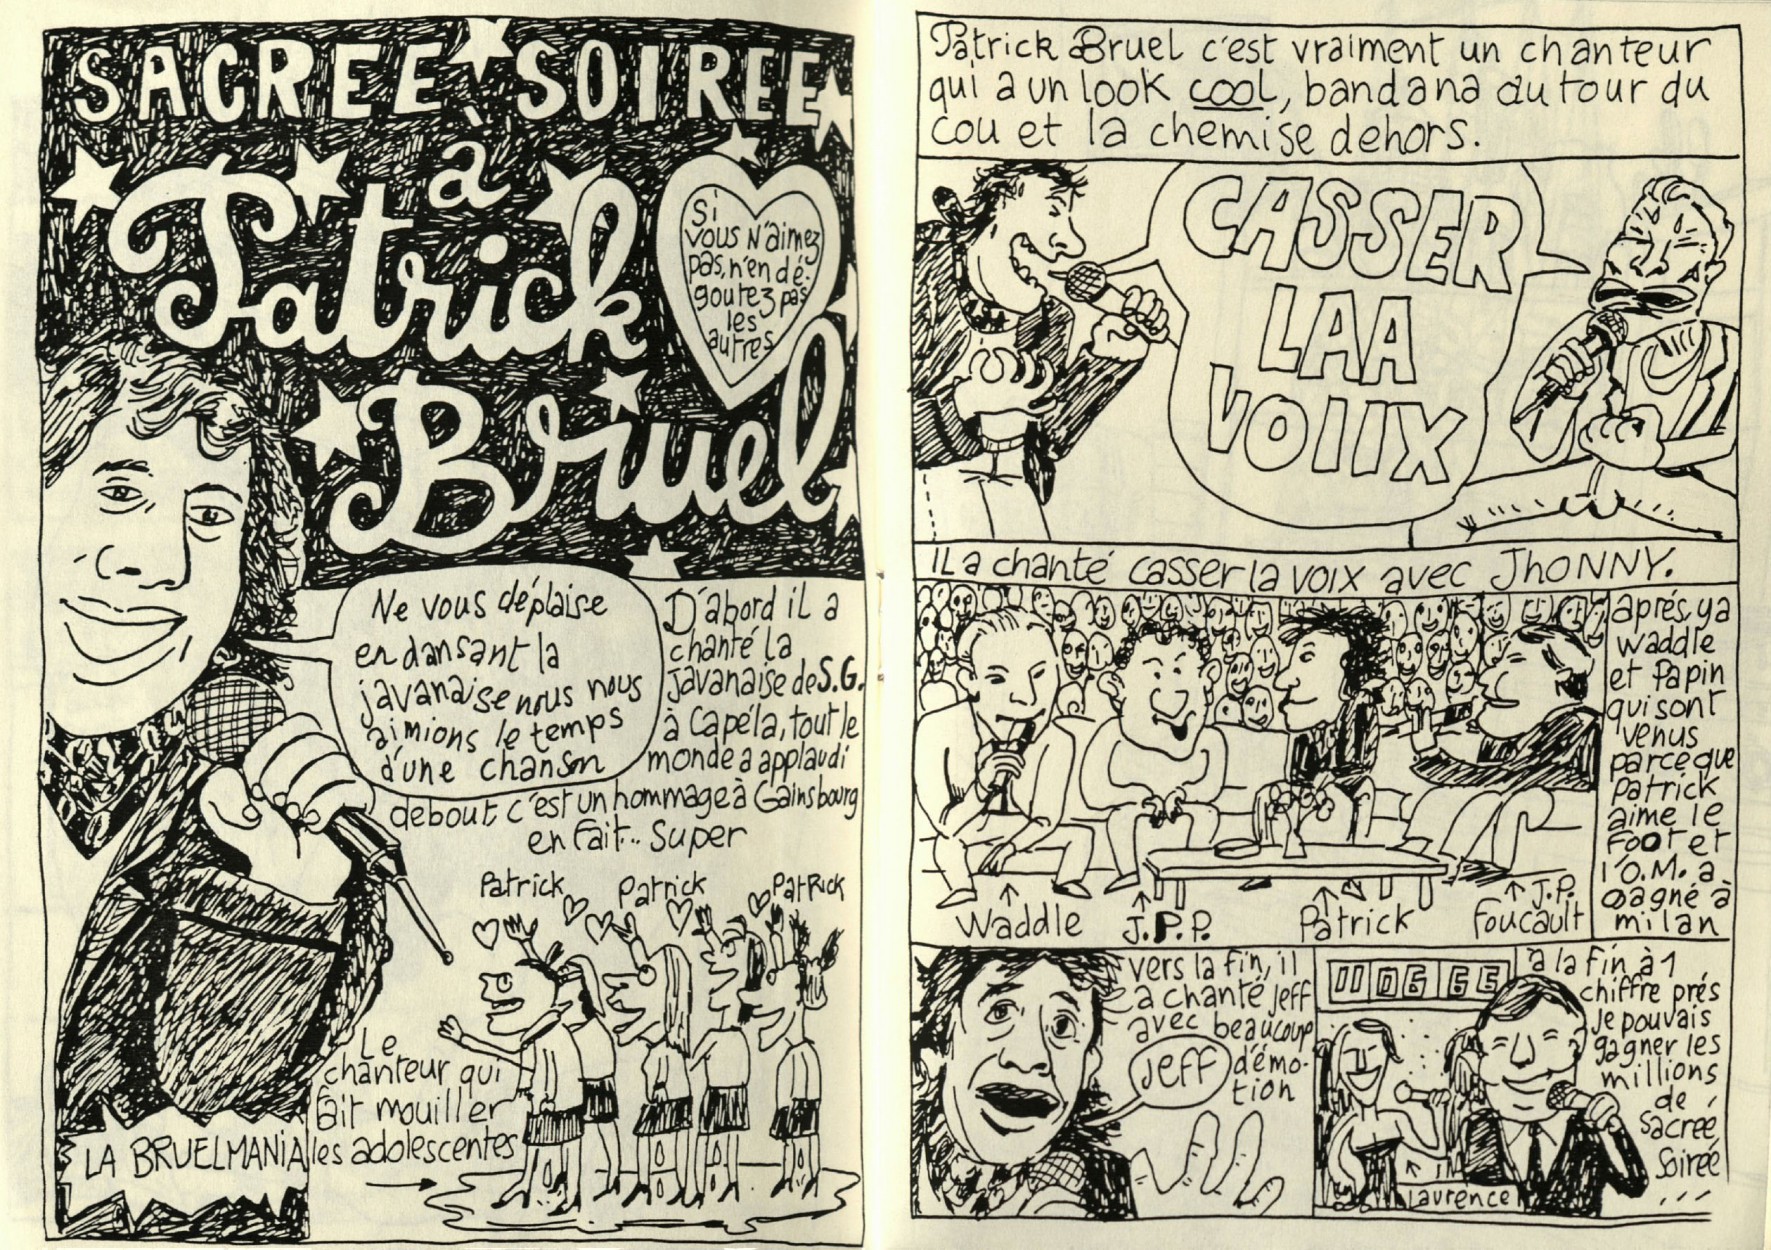 SACREE SOIREE
à
Patrick
Bruel
Si
vous n'aimez
pas, n'en dé-
goutez pas
les
autres
Ne vous déplaise
en dansant la
javanaise nous nous
aimions le temps
d'une chanson
D'abord il a
chanté la
javanaise de S.G.
à Capéla, tout le
monde a applaudi
debout c'est un hommage à Gainsbourg
en fait... Super
Patrick Patrick Patrick
Le
chanteur qui
fait mouiller
les adolescentes
LA BRUELMANIA
Patrick Bruel c'est vraiment un chanteur
qui a un look cool, bandana autour du
cou et la chemise dehors.
CASSER
LAA
VOIIX
IL a chanté casser la voix avec JHONNY.
après, ya
Waddle
et Papin
qui sont
venus
parce que
Patrick
aime le
Foot et
l'O.M. a
gagné à
milan
Waddle
J.P.P.
Patrick
J.P.
Foucault
vers la fin, il
a chanté jeff
avec beaucoup
d'émo-
tion
JEFF
110666
à la fin à 1
chiffre prés
Je pouvais
gagner les
millions
de
sacrée
Soirée
...
Laurence